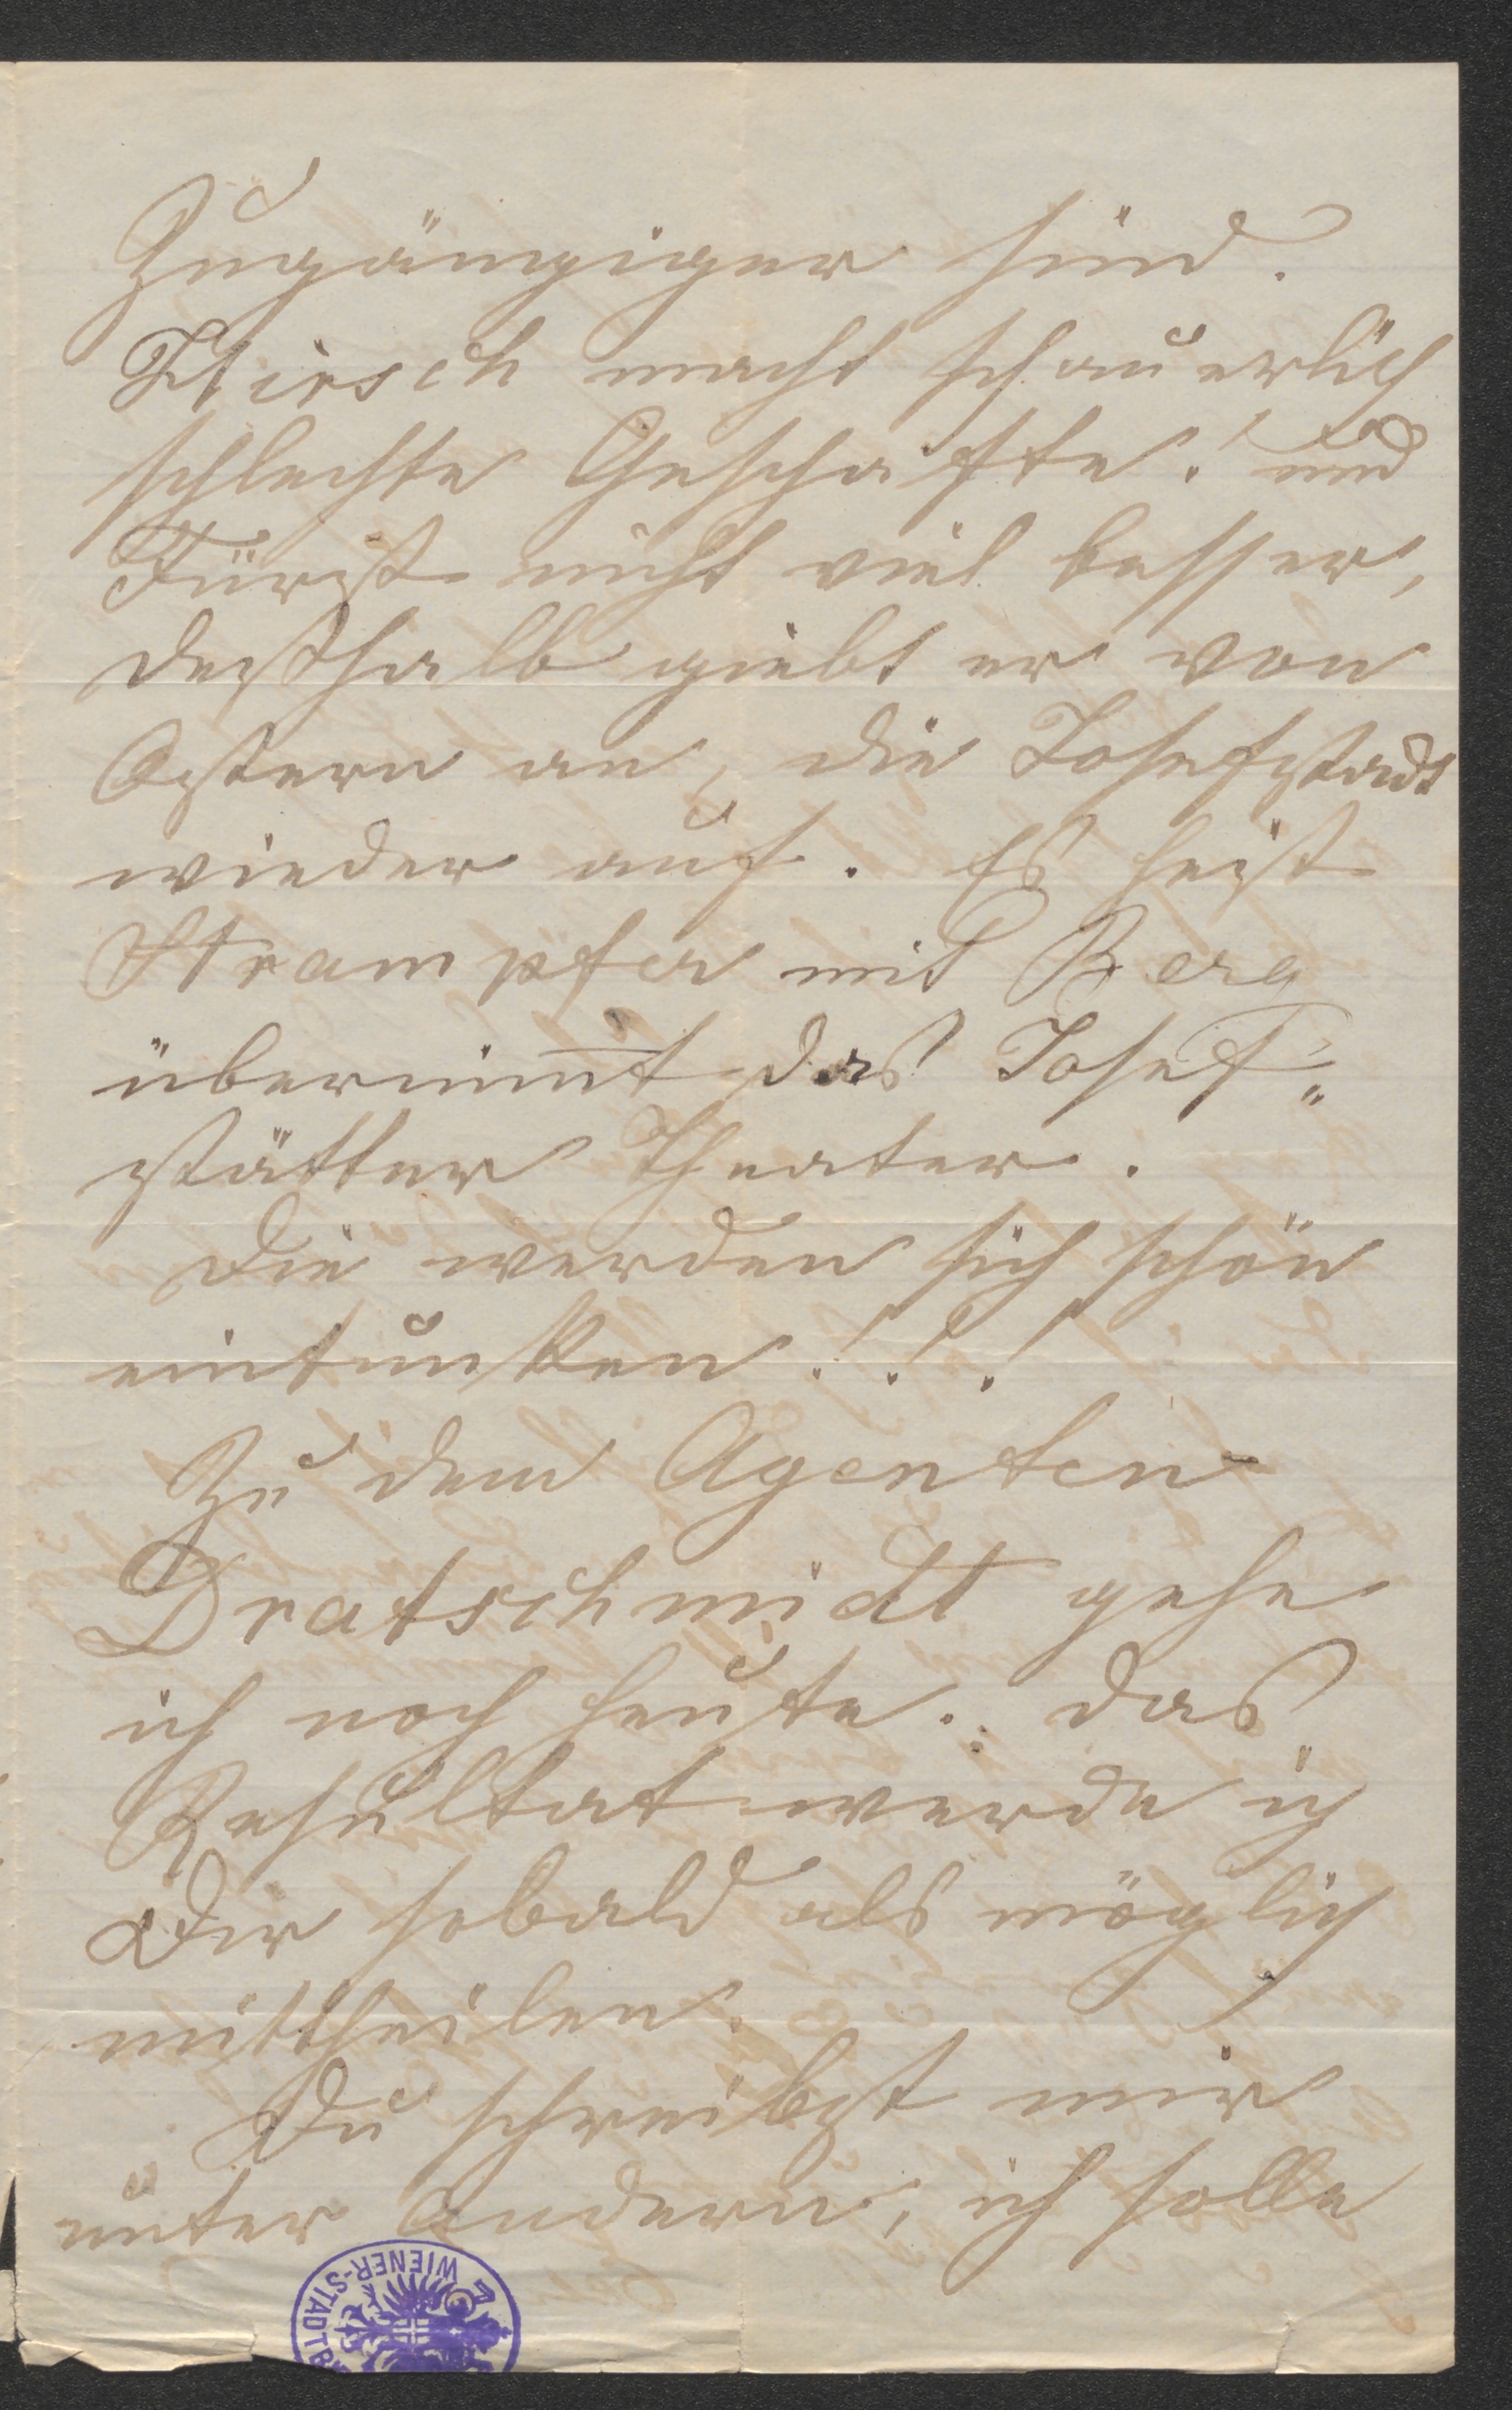 Zugängiger sind.
Hirsch macht schauerlich
schlechte Geschäfte! und
Fürst nicht viel besser,
desthalb giebt er von
Ostern an, die Josefstadt
wieder auf. Es heist
Strampfer mit Berg
übernim̅t das Josef„
stätter Theater.
Die werden sich schön
eintunken!!!
Zu dem Agenten
Dratschmidt gehe
ich noch heute. das
Resultat werde ich
Dir sobald als möglich
mittheilen.
Du schreibst mir
unter Andern, ich solle
WIENER-STADTB